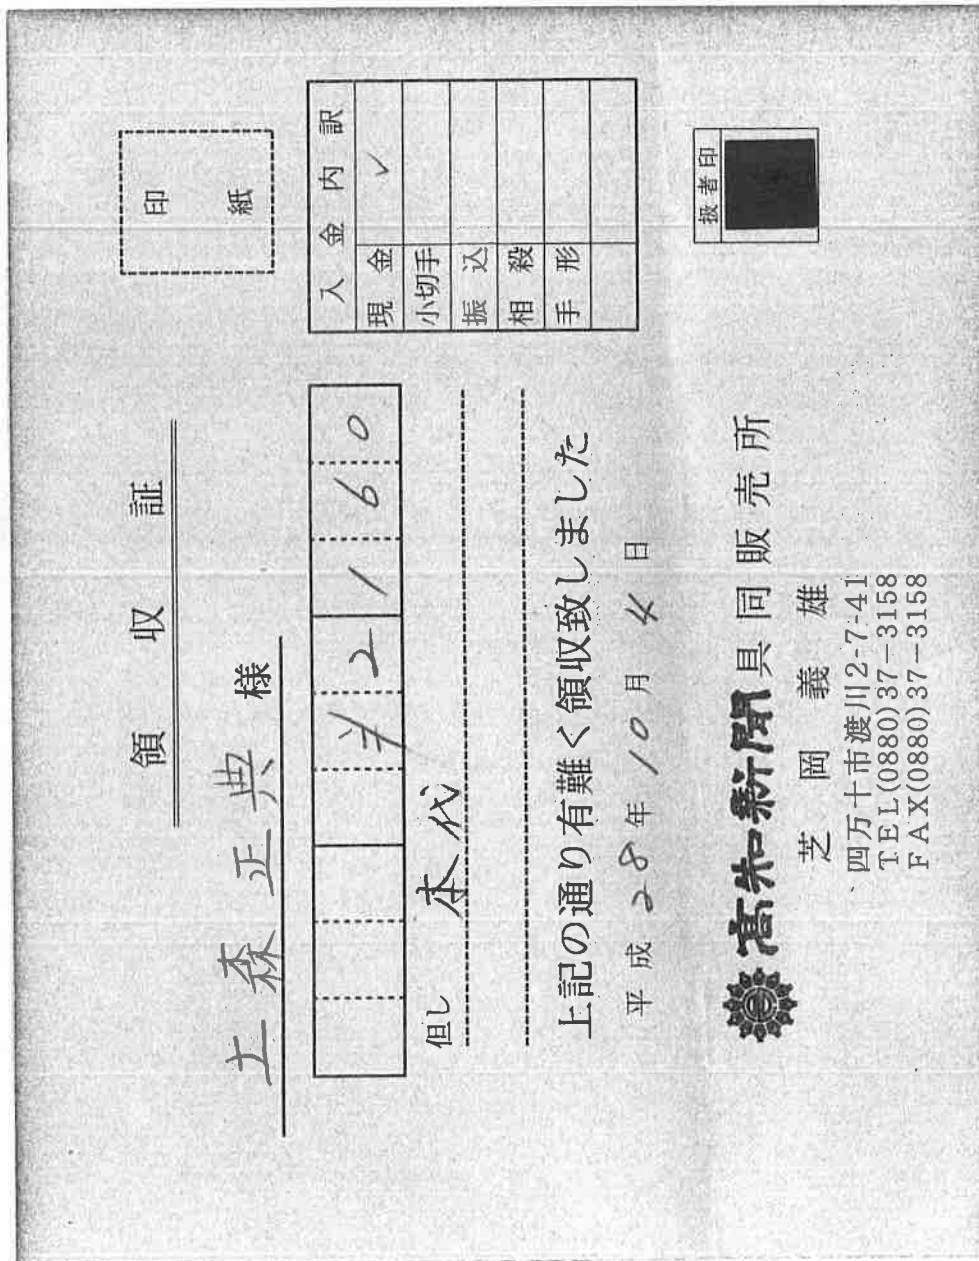 領収証
土森正典 様
¥2160
但し 本代
上記の通り有難く領収致しました
平成28年10月4日
高知新聞具同販売所
芝岡義雄
四万十市渡川2-7-41
TEL(0880)37-3158
FAX(0880)37-3158
印紙
入金内訳
現金 ✓
小切手
振込
相殺
手形
扱者印